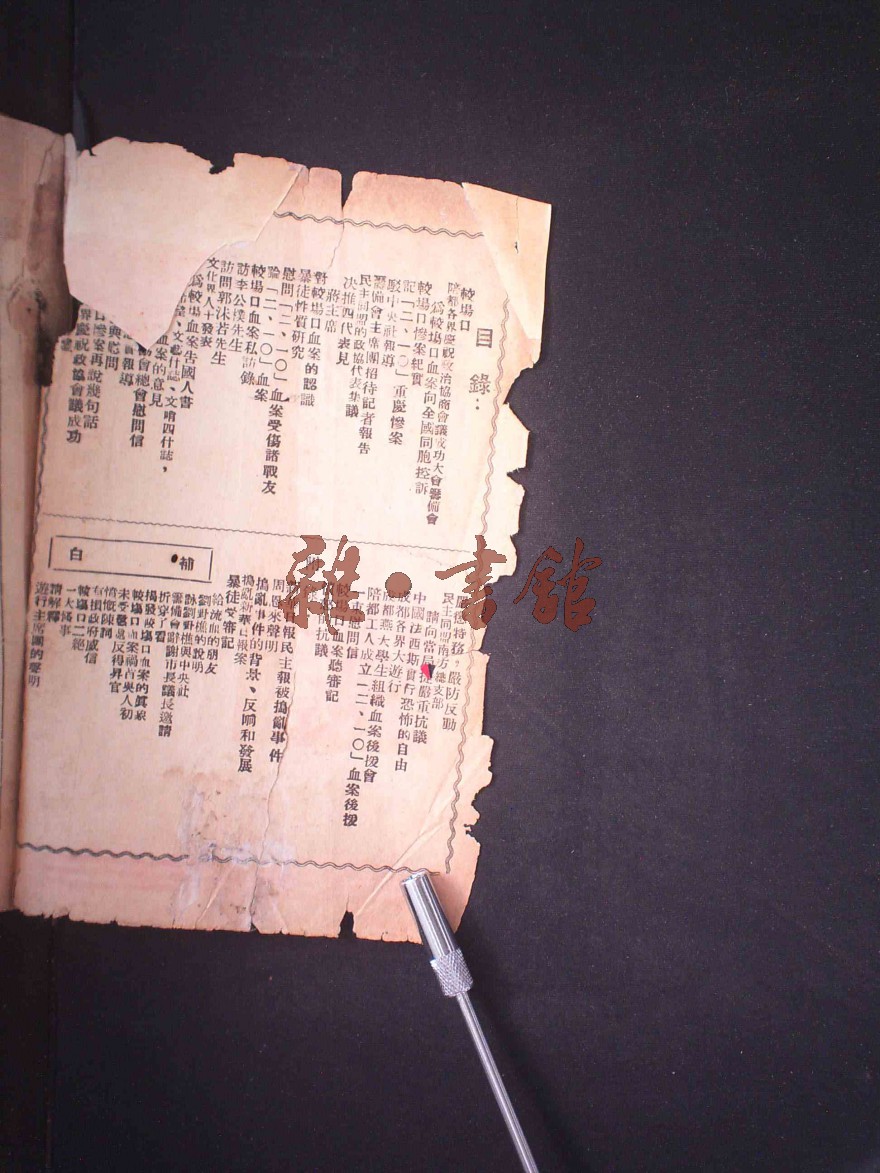 目錄：
較場口
陪都各界慶祝政治協商會議成功大會籌備會
爲較場口血案向全國同胞控訴
較場口慘案紀實
記「二、一〇」重慶慘案
駁中央社報導
籌備會主席團招待記者報告
民主同盟的政協代表集議
決推四代表見
蔣主席
對較場口血案的認識
暴徒性質研究
慰問「二、一〇」血案受傷諸戰友
論「二、一〇」血案
較場口血案私訪錄
訪李公樸先生
訪問郭沫若先生
文化界人士發表
爲較場血案告國人書
文藝什誌、文哨四什誌，
血案的意見
協會總會慰問信
報導
慰問
口慘案再說幾句話
界慶祝政協會議成功
嚴防反動
民主同盟南方總支部
請向當局提嚴重抗議
中國法西斯實行恐怖的自由
成都各界大遊行
成都燕大學生組織血案後援會
陪都工人成立「二、一〇」血案後援
慰問信
較場口血案聽審記
抗議
報民主報被搗亂事件
周恩來聲明
搗亂事件的背景、反响和發展
搗亂新華日報案
暴徒受審記
補白
給流血的朋友
劉野樵的說明
詠劉野樵與中央社
折穿了看
籌備會辭謝市長議長邀請
揭發較場口血案的眞象
較場口血案禍首吳人初
未受懲處反得昇官
憤慨陳詞
有損政府威信
較場口二絕
一大醜事
請解釋
遊行主席團的聲明
雜·書館